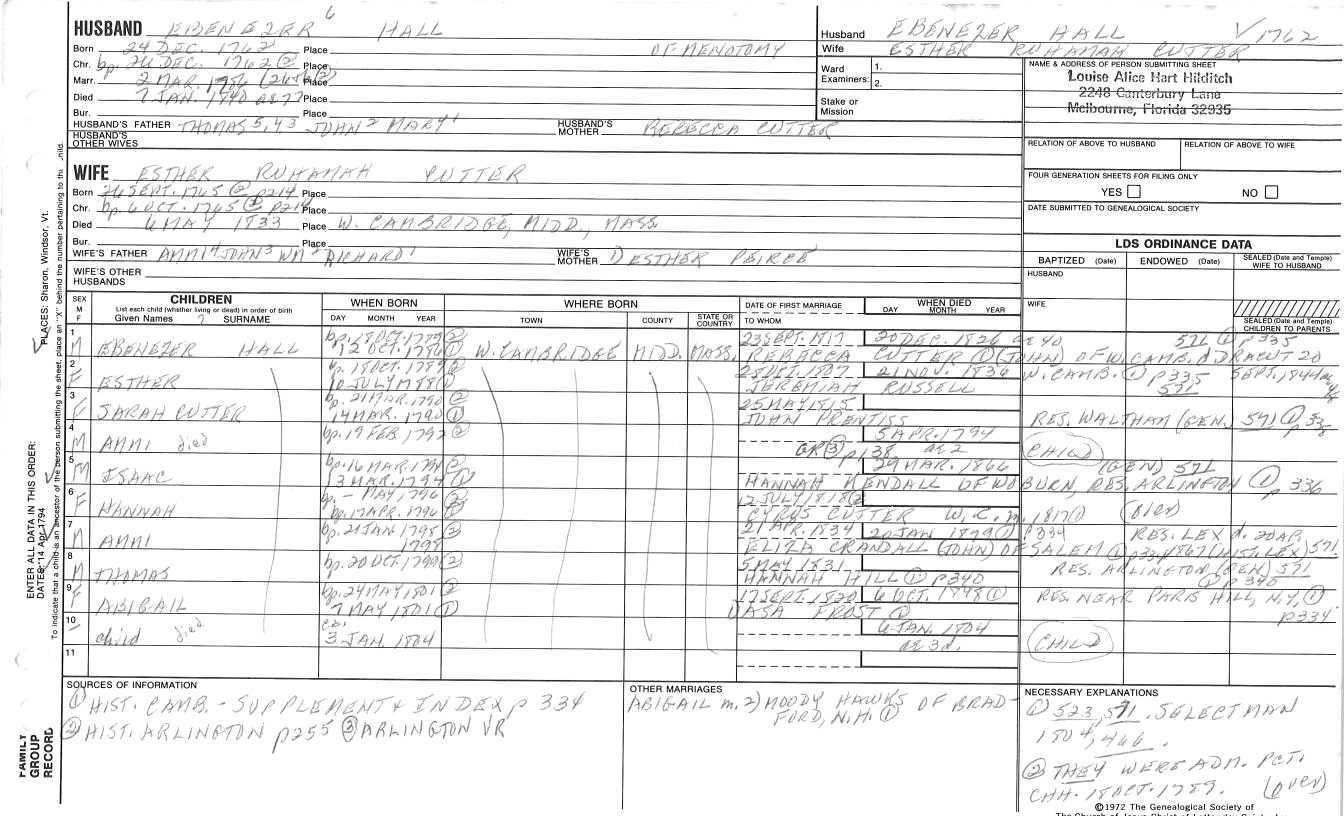 HUSBAND EBENEZER 6 HALL
Born 24 DEC. 1762 Place OF MENOTOMY
Chr. bp. 26 DEC. 1762 ② Place
Marr. 2 MAR. 1786 Place
Died 7 JAN. 1840 ae 77 Place
Bur. Place
HUSBAND'S FATHER THOMAS 5, 4, 3 JOHN 2 MARY 1 HUSBAND'S MOTHER REBECCA CUTTER
HUSBAND'S OTHER WIVES
Husband EBENEZER HALL √1762
Wife ESTHER RUHAMAH CUTTER
Ward 1.
Examiners: 2.
Stake or Mission
NAME & ADDRESS OF PERSON SUBMITTING SHEET
Louise Alice Hart Hilditch
2248 Canterbury Lane
Melbourne, Florida 32935
RELATION OF ABOVE TO HUSBAND RELATION OF ABOVE TO WIFE
FOUR GENERATION SHEETS FOR FILING ONLY
YES NO
DATE SUBMITTED TO GENEALOGICAL SOCIETY
WIFE ESTHER RUHAMAH CUTTER
Born 26 SEPT. 1765 ② p214 Place
Chr. bp. 6 OCT. 1765 ② p214 Place
Died 6 MAY 1833 Place W. CAMBRIDGE, MIDD., MASS.
Bur. Place
WIFE'S FATHER AMMI 4 JOHN 3 WM 2 RICHARD 1 WIFE'S MOTHER ESTHER PEIRCE
WIFE'S OTHER HUSBANDS
LDS ORDINANCE DATA
BAPTIZED (Date) ENDOWED (Date) SEALED (Date and Temple) WIFE TO HUSBAND
HUSBAND
WIFE
SEALED (Date and Temple) CHILDREN TO PARENTS
SEX M F
CHILDREN
List each child (whether living or dead) in order of birth
Given Names 7 SURNAME
WHEN BORN
DAY MONTH YEAR
WHERE BORN
TOWN COUNTY STATE OR COUNTRY
DATE OF FIRST MARRIAGE
TO WHOM
WHEN DIED
DAY MONTH YEAR
1 bp. 18 OCT. 1789 ② 23 SEPT. 1817 20 DEC. 1826 ae 40 571 ① p335
M EBENEZER HALL 12 OCT. 1786 ① W. CAMBRIDGE MIDD. MASS. REBECCA CUTTER ① (JOHN) OF W. CAMB. & DRACUT 20
2 bp. 18 OCT. 1789 ② 25 OCT. 1807 21 NOV. 1836 W. CAMB. ① p335 SEPT. 1844
F ESTHER 10 JULY 1788 ① JEREMIAH RUSSELL 571
3 bp. 21 MAR. 1790 ② 25 MAY 1815
F SARAH CUTTER 14 MAR. 1790 ① JOHN PRENTISS RES. WALTHAM (GEN. 571 ①
4 bp. 19 FEB 1792 ② 5 APR. 1794
M AMMI died GR ③ p138 ae 2 (CHILD)
5 bp. 16 MAR. 1794 ② 29 MAR. 1866 (GEN) 571
M ISAAC 13 MAR. 1794 ① HANNAH KENDALL OF WOBURN, RES. ARLINGTON ① p336
6 bp. - MAY, 1796 ② 12 JULY 1818 ②
F HANNAH bp. 17 APR. 1796 ① CYRUS CUTTER W. C., m. 1817 ① (over)
7 bp. 21 JAN 1798 ③ 21 APR. 1834 20 JAN 1879 ① p334 RES. LEX d. 20 AP.
M AMMI 1798 ELIZA CRANDALL (JOHN) OF SALEM ① p334 1867 (HIST. LEX) 571
8 bp. 20 OCT. 1799 ② 5 MAY 1831 RES. ARLINGTON (GEN) 571
M THOMAS HANNAH HILL ① p340 ① p340
9 bp. 24 MAY 1801 ② 17 SEPT. 1820 6 OCT. 1898 ① RES. NEAR PARIS HILL, N.Y. ①
F ABIGAIL 7 MAY 1801 ① DASA FROST ① p334
10 6 JAN. 1804
child died 3 JAN. 1804 ae 3 d. (CHILD)
11
SOURCES OF INFORMATION
① HIST. CAMB. - SUPPLEMENT & INDEX p 334
② HIST. ARLINGTON p255 ③ ARLINGTON VR
OTHER MARRIAGES
ABIGAIL m. 2) MOODY HAWKS OF BRAD-
FORD, N.H. ①
NECESSARY EXPLANATIONS
① 523, 571. SELECTMAN
1804, 466.
② THEY WERE ADM. PCT.
CHH. 18 OCT. 1789. (over)
©1972 The Genealogical Society of
The Church of Jesus Christ of Latter-day Saints, Inc.
FAMILY GROUP RECORD
ENTER ALL DATA IN THIS ORDER:
DATES: 14 Apr 1794
PLACES: Sharon, Windsor, Vt.
To indicate that a child is an ancestor of the person submitting the sheet, place an "X" behind the number pertaining to that child.